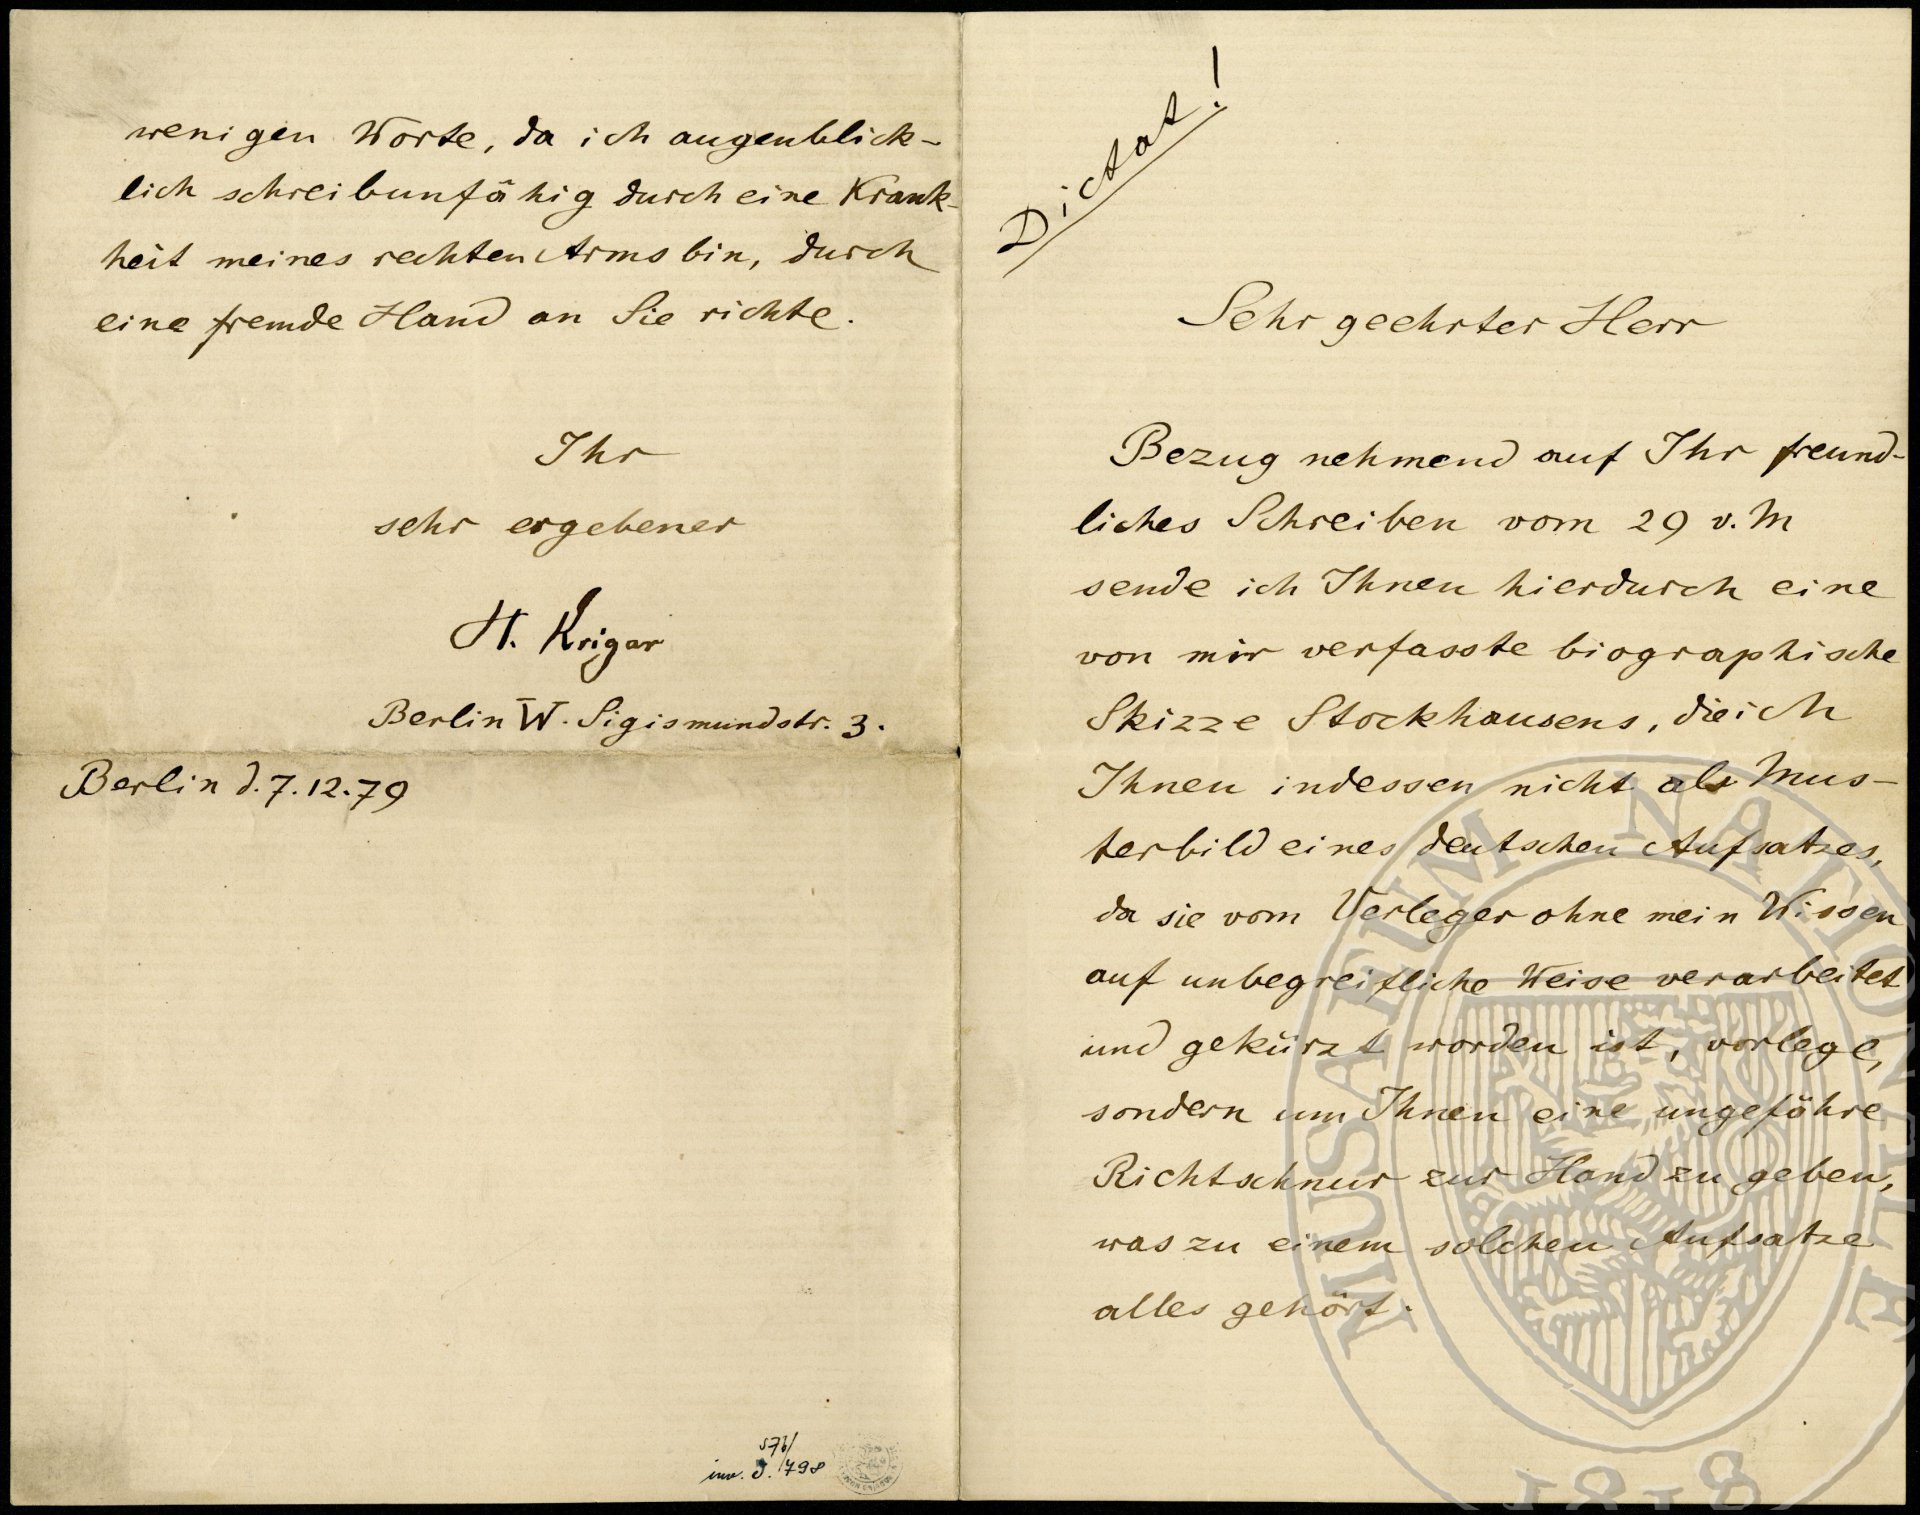 Dictat!
Sehr geehrter Herr
Bezug nehmend auf Ihr freund-
liches Schreiben vom 29 v. M
sende ich Ihnen hierdurch eine
von mir verfasste biographische
Skizze Stockhausens, die ich
Ihnen indessen nicht als Mus-
terbild eines deutschen Aufsatzes,
da sie vom Verleger ohne mein Wissen
auf unbegreifliche Weise verarbeitet
und gekürzt worden ist, vorlege,
sondern um Ihnen eine ungefähre
Richtschnur zur Hand zu geben,
was zu einem solchen Aufsatze
alles gehört.
MUSAEUM NATIONALE
1818
wenigen Worte, da ich augenblick-
lich schreibunfähig durch eine Krank-
heit meines rechten Arms bin, durch
eine fremde Hand an Sie richte.
Ihr
sehr ergebener
H. Krigar
Berlin W. Sigismundstr. 3.
Berlin d. 7.12.79
inv. 798